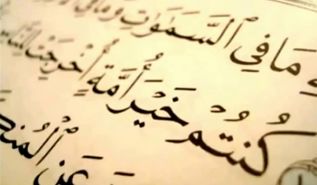 مَا فِي ٱلسَّمَٰوَٰتِ وَمَا فِي
كُنتُمْ خَيْرَ أُمَّةٍ أُخْرِجَتْ لِلنَّاسِ
عَنِ ٱلْمُنكَرِ